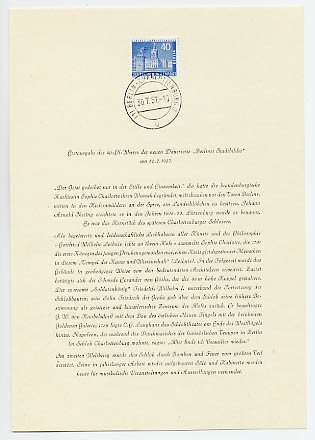 40
(1) BERLIN-CHARLOTTENBURG
30.7.57.-10
Erstausgabe des 40-Pf-Wertes der neuen Dauerserie „Berliner Stadtbilder“
am 30.7.1957.
„Der Geist gedeihet nur in der Stille und Einsamkeit.“ So hatte die brandenburgische
Kurfürstin Sophie Charlotte ihren Wunsch begründet, sich draußen vor den Toren Berlins,
mitten in den Kiefernwäldern an der Spree, ein Landschlößchen zu besitzen. Johann
Arnold Nering errichtete es in den Jahren 1695-99. Lützenburg wurde es benannt.
Es war das Kernstück des späteren Charlottenburger Schlosses.
Als begeisterte und leidenschaftliche Liebhaberin aller Künste und der Philosophie
- Gottfried Wilhelm Leibniz lebte an ihrem Hofe - sammelte Sophie Charlotte, die 1701
die erste Königin des jungen Preußen geworden war, einen Kreis gleichgesinnter Menschen
in diesem „Tempel der Kunst und Wissenschaft“ (Leibniz). In der Folgezeit wurde das
Gebäude in großzügiger Weise von den bedeutendsten Architekten erweitert. Zuerst
betätigte sich der Schwede Eosander von Goethe, der die 48 m hohe Kuppel gestaltete.
Der sparsame „Soldatenkönig“ Friedrich Wilhelm I. unterband die Fortsetzung der
Schloßbauten; sein Sohn Friedrich der Große gab aber dem Schloß seine frühere Be-
stimmung als geistiges und künstlerisches Zentrum des Hofes zurück. Er beauftragte
G. W. von Knobelsdorff mit dem Bau des östlichen Neuen Flügels mit der berühmten
Goldenen Galerie. 1790 fügte C. G. Langhans das Schloßtheater am Ende des Westflügels
hinzu. Napoleon, der während des Durchmarsches der französischen Truppen in Berlin
im Schloß Charlottenburg wohnte, sagte: „Hier finde ich Versailles wieder.“
Im zweiten Weltkrieg wurde das Schloß durch Bomben und Feuer zum großen Teil
zerstört. Seine in jahrelanger Arbeit wieder aufgebauten Säle und Kabinette werden
heute für musikalische Veranstaltungen und Ausstellungen verwendet.